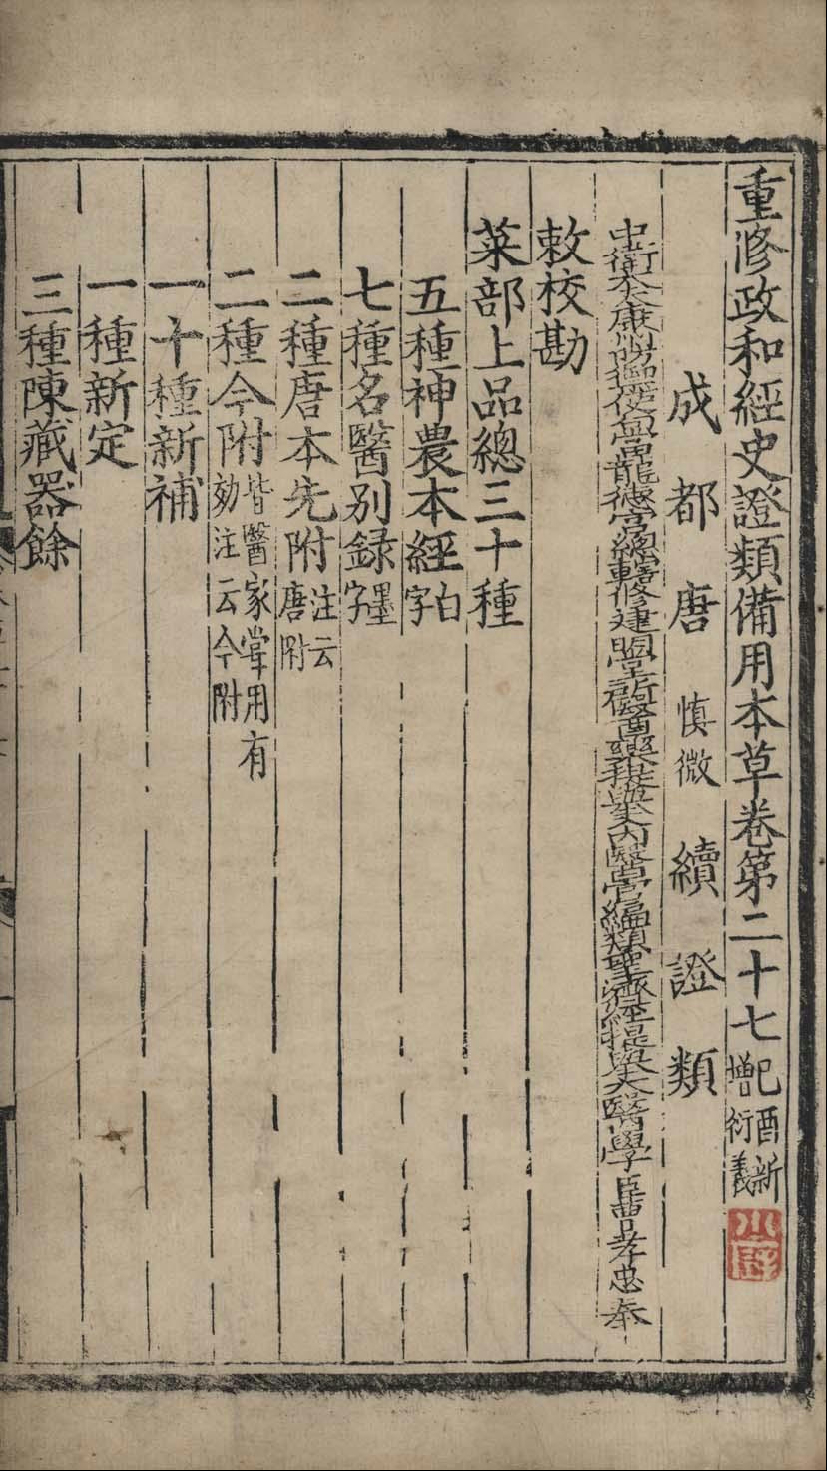 重修政和經史證類備用本草卷第二十七己酉新增衍義
成都唐慎微續證類
中衛大夫康州防禦使句當龍德宮總轄修建明堂所醫藥提舉入內醫官編類聖濟經提舉太醫學臣曹孝忠奉
敕校勘
菜部上品總三十種
五種神農本經白字
七種名醫别録墨字
二種唐本先附注云唐附
二種今附皆醫家嘗用有効注云今附
一十種新補
一種新定
三種陳藏器餘